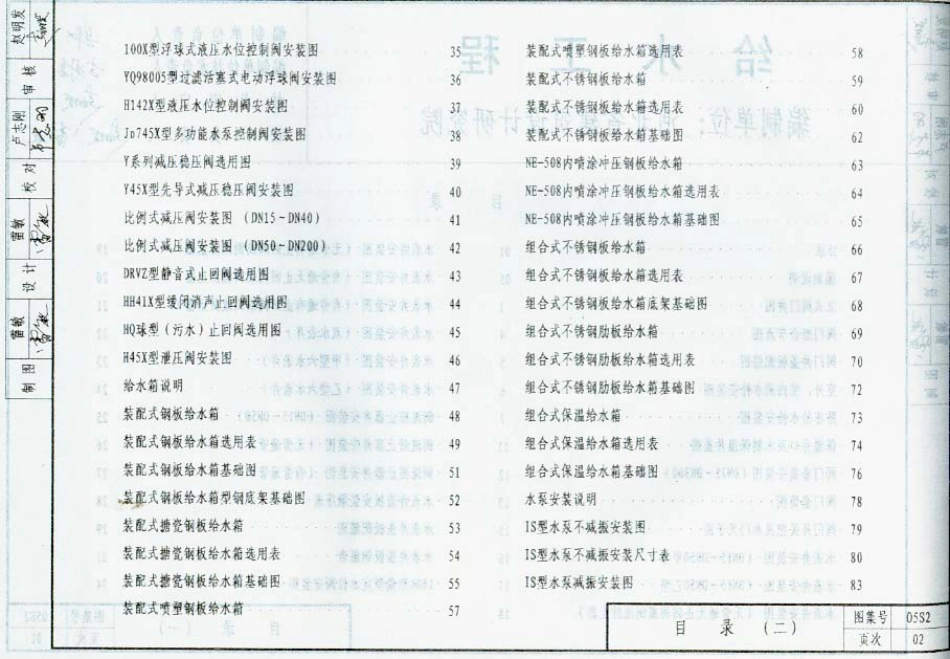 100X型浮球式液压水位控制阀安装图 35
YQ98005型过滤活塞式电动浮球阀安装图 36
H142X型液压水位控制阀安装图 37
Jp745X型多功能水泵控制阀安装图 38
Y系列减压稳压阀选用图 39
Y45X型先导式减压稳压阀安装图 40
比例式减压阀安装图 (DN15~DN40) 41
比例式减压阀安装图 (DN50~DN200) 42
DRVZ型静音式止回阀选用图 43
HH41X型缓闭消声止回阀选用图 44
HQ球型(污水)止回阀选用图 45
H45X型泄压阀安装图 46
给水箱说明 47
装配式钢板给水箱 48
装配式钢板给水箱选用表 49
装配式钢板给水箱基础图 51
装配式钢板给水箱型钢底架基础图 52
装配式搪瓷钢板给水箱 53
装配式搪瓷钢板给水箱选用表 54
装配式搪瓷钢板给水箱基础图 55
装配式喷塑钢板给水箱 57
装配式喷塑钢板给水箱选用表 58
装配式不锈钢板给水箱 59
装配式不锈钢板给水箱选用表 60
装配式不锈钢板给水箱基础图 62
NE-508内喷涂冲压钢板给水箱 63
NE-508内喷涂冲压钢板给水箱选用表 64
NE-508内喷涂冲压钢板给水箱基础图 65
组合式不锈钢板给水箱 66
组合式不锈钢板给水箱选用表 67
组合式不锈钢板给水箱底架基础图 68
组合式不锈钢肋板给水箱 69
组合式不锈钢肋板给水箱选用表 70
组合式不锈钢肋板给水箱基础图 72
组合式保温给水箱 73
组合式保温给水箱选用表 74
组合式保温给水箱基础图 76
水泵安装说明 78
IS型水泵不减振安装图 79
IS型水泵不减振安装尺寸表 80
IS型水泵减振安装图 83
目 录 (二)
图集号 05S2
页次 02
赵明发
审 核
卢志刚
校 对
雷敏
设 计
雷敏
制 图